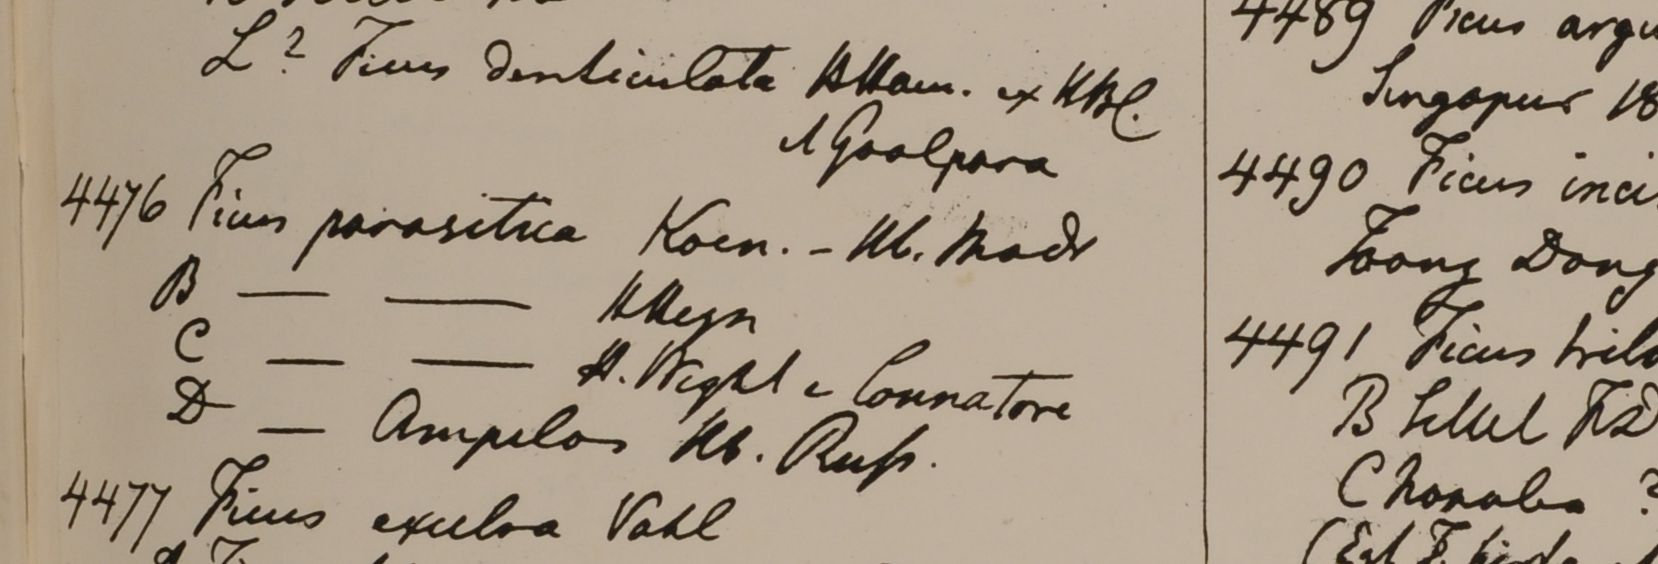 L? Ficus denticulata HHam. ex HBC.
1 Goalpara
4476 Ficus parasitica Koen. - Hb. Madr
B — — HHeyn
C — — H. Wight e Connatore
D — Ampelos Hb. Russ.
4477 Ficus exulsa Vahl
4489 Ficus argu
Singapur 18
4490 Ficus inci
Toong Dong
4491 Ficus trilo
B Sillet FD
C